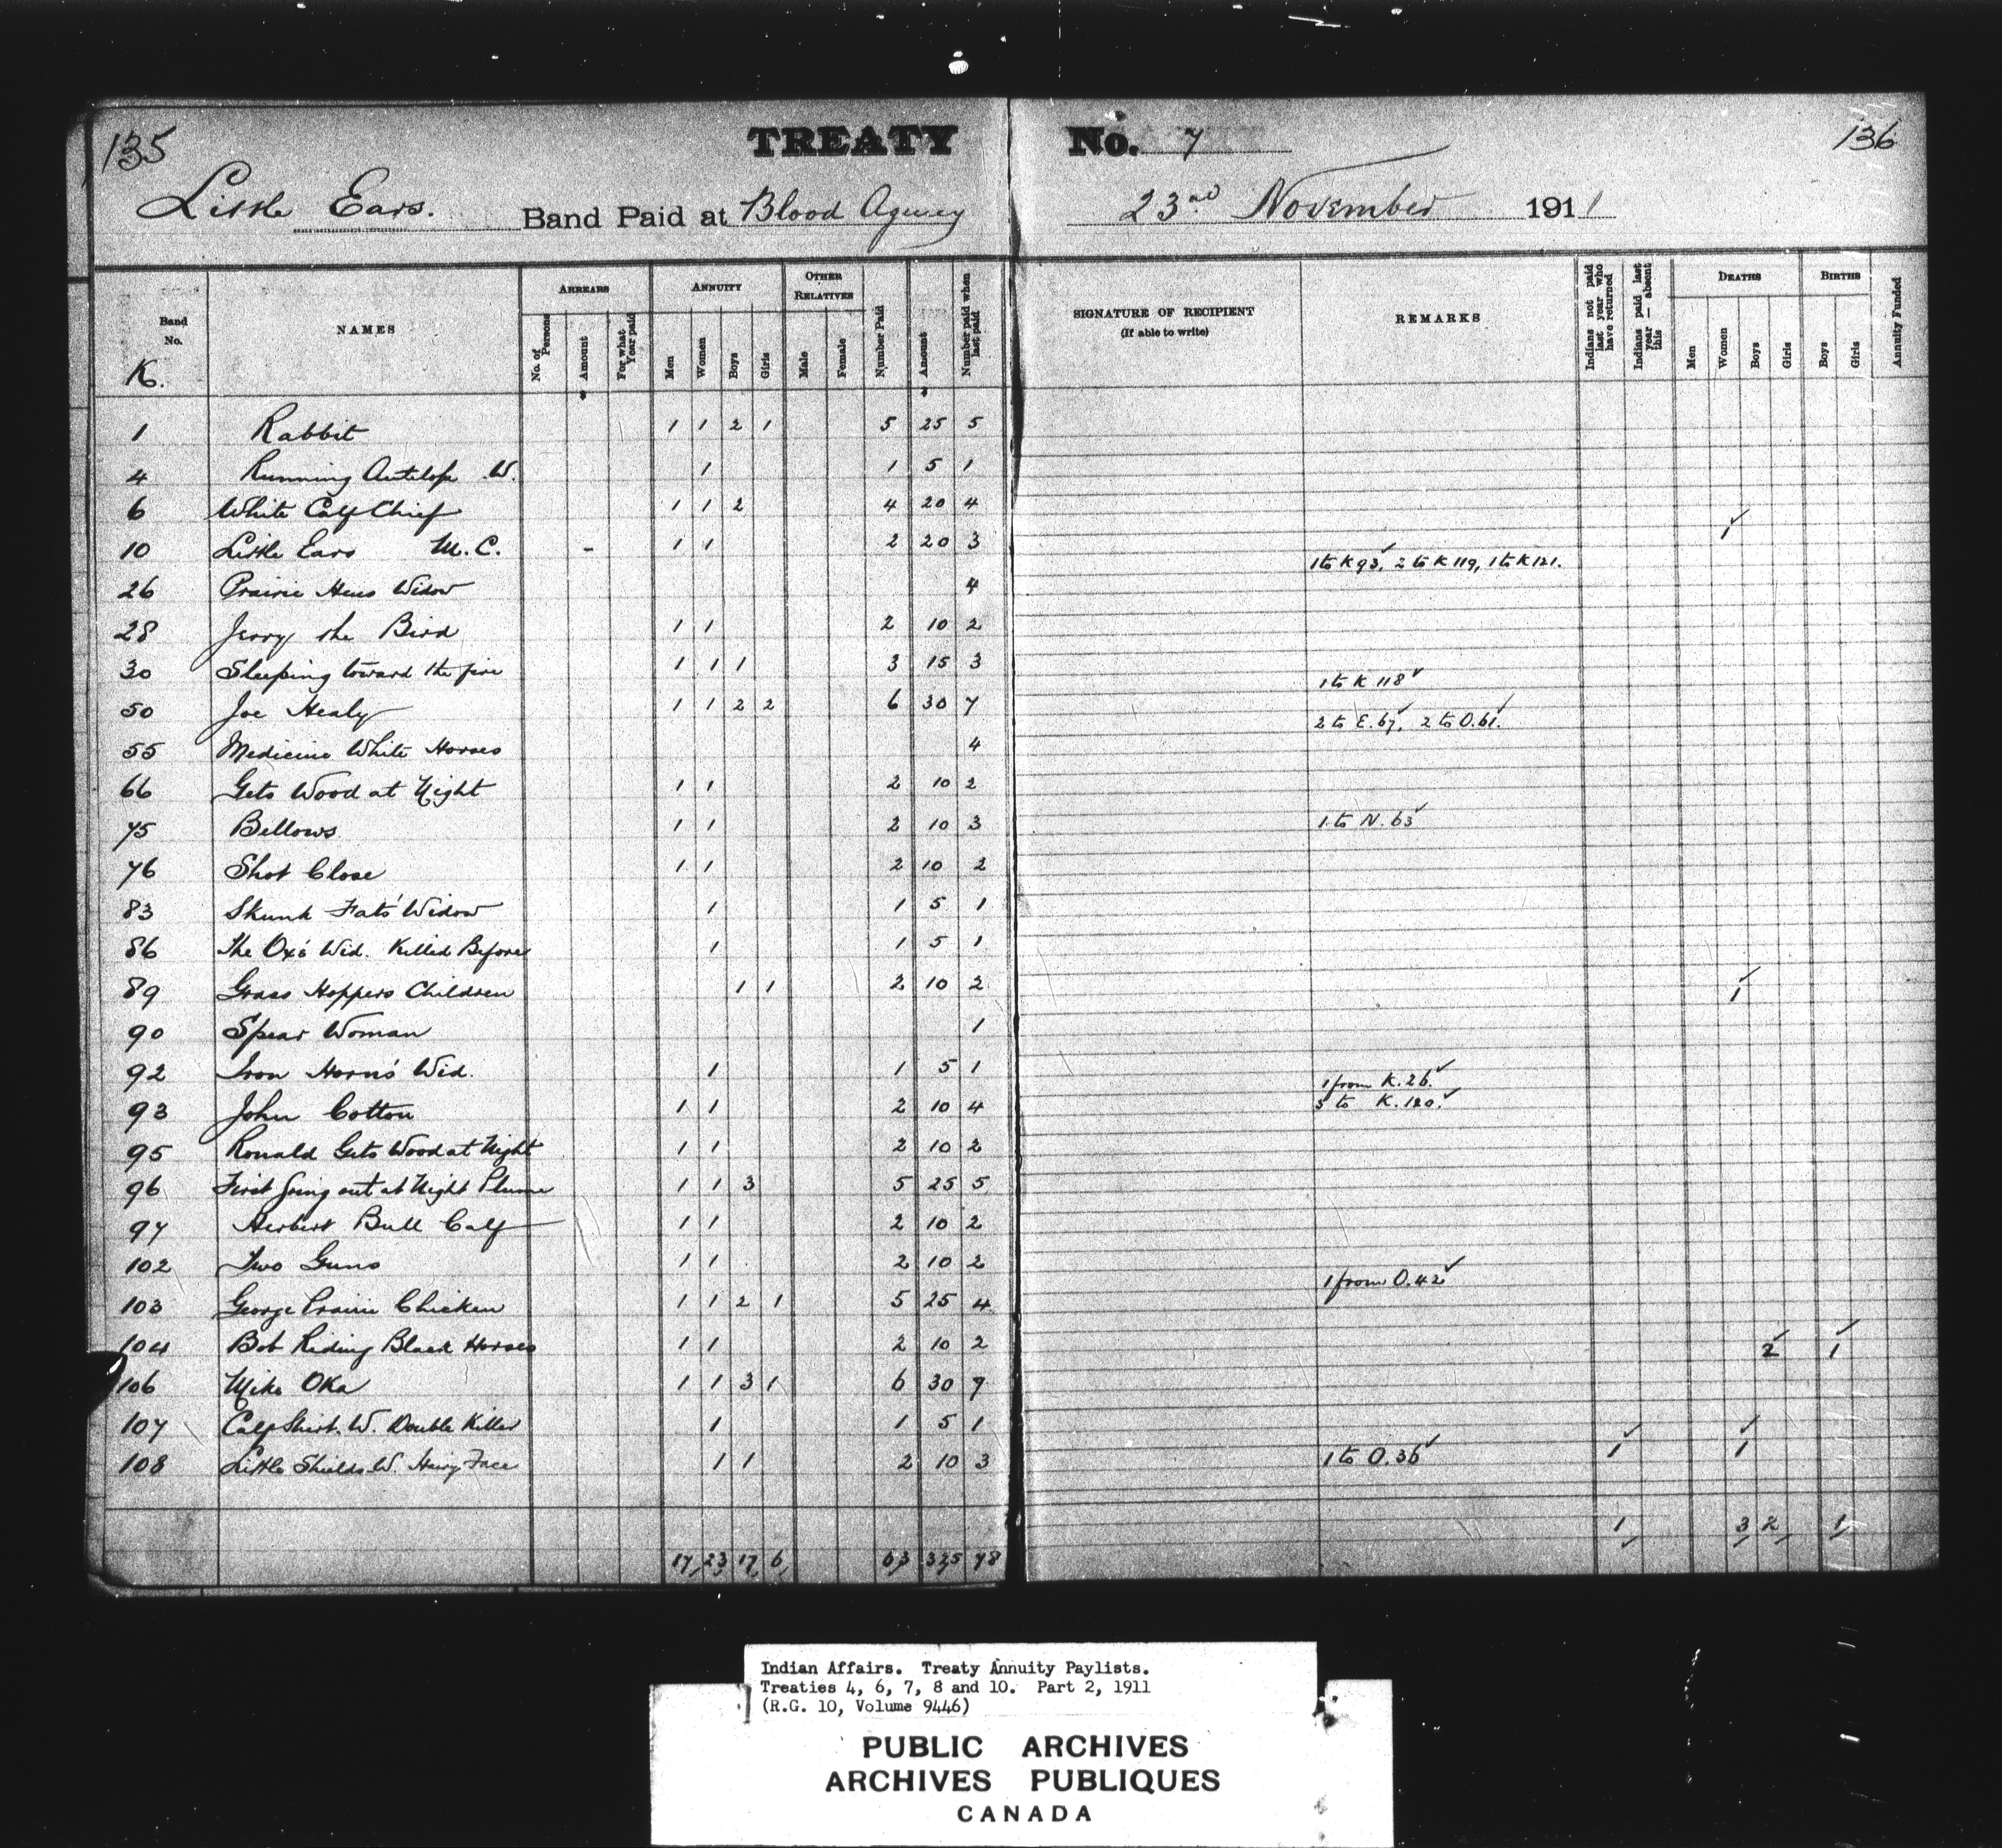 135
TREATY No. 7
136
Little Ears. Band Paid at Blood Agency 23rd November 1911
Band No. NAMES ARREARS ANNUITY OTHER RELATIVES Number Paid Amount Number paid when last paid SIGNATURE OF RECIPIENT (If able to write) REMARKS Indians not paid last year who have returned Indians paid last year — absent this DEATHS BIRTHS Annuity Funded
K. No. of Persons Amount For what Year paid Men Women Boys Girls Male Female Men Women Boys Girls Boys Girls
1 Rabbit 1 1 2 1 5 25 5
4 Running Antilop W. 1 1 5 1
6 White Calf Chief 1 1 2 4 20 4
10 Little Ears M.C. - 1 1 2 20 3 1
26 Prairie Hens Widow 4 1 to K 93, 2 to K 119, 1 to K 121.
28 Jerry the Bird 1 1 2 10 2
30 Sleeping toward the fire 1 1 1 3 15 3
50 Joe Healy 1 1 2 2 6 30 7 1 to K 118
55 Medicine White Horses 4 2 to E. 67, 2 to O. 61.
66 Gets Wood at Night 1 1 2 10 2
75 Bellows 1 1 2 10 3 1 to N. 63
76 Shot Close 1 1 2 10 2
83 Skunk Fats' Widow 1 1 5 1
86 The Ox's Wid. Killed Before 1 1 5 1
89 Grass Hoppers Children 1 1 2 10 2
90 Spear Woman 1 1
92 Iron Horns' Wid. 1 1 5 1
93 John Cotton 1 1 2 10 4 1 from K. 26. 3 to K. 120.
95 Ronald Gets Wood at Night 1 1 2 10 2
96 First Going out at Night Plume 1 1 3 5 25 5
97 Herbert Bull Calf 1 1 2 10 2
102 Two Guns 1 1 2 10 2
103 George Prairie Chicken 1 1 2 1 5 25 4 1 from O. 42
104 Bob Riding Black Horses 1 1 2 10 2
106 Mike Oka 1 1 3 1 6 30 7 2 1
107 Calf Shirt. W. Double Killer 1 1 5 1
108 Little Shields W. Hairy Face 1 1 2 10 3 1 to O. 36 1 1
1 3 2 1
17 23 17 6 63 325 78
Indian Affairs. Treaty Annuity Paylists.
Treaties 4, 6, 7, 8 and 10. Part 2, 1911
(R.G. 10, Volume 9446)
PUBLIC ARCHIVES
ARCHIVES PUBLIQUES
CANADA